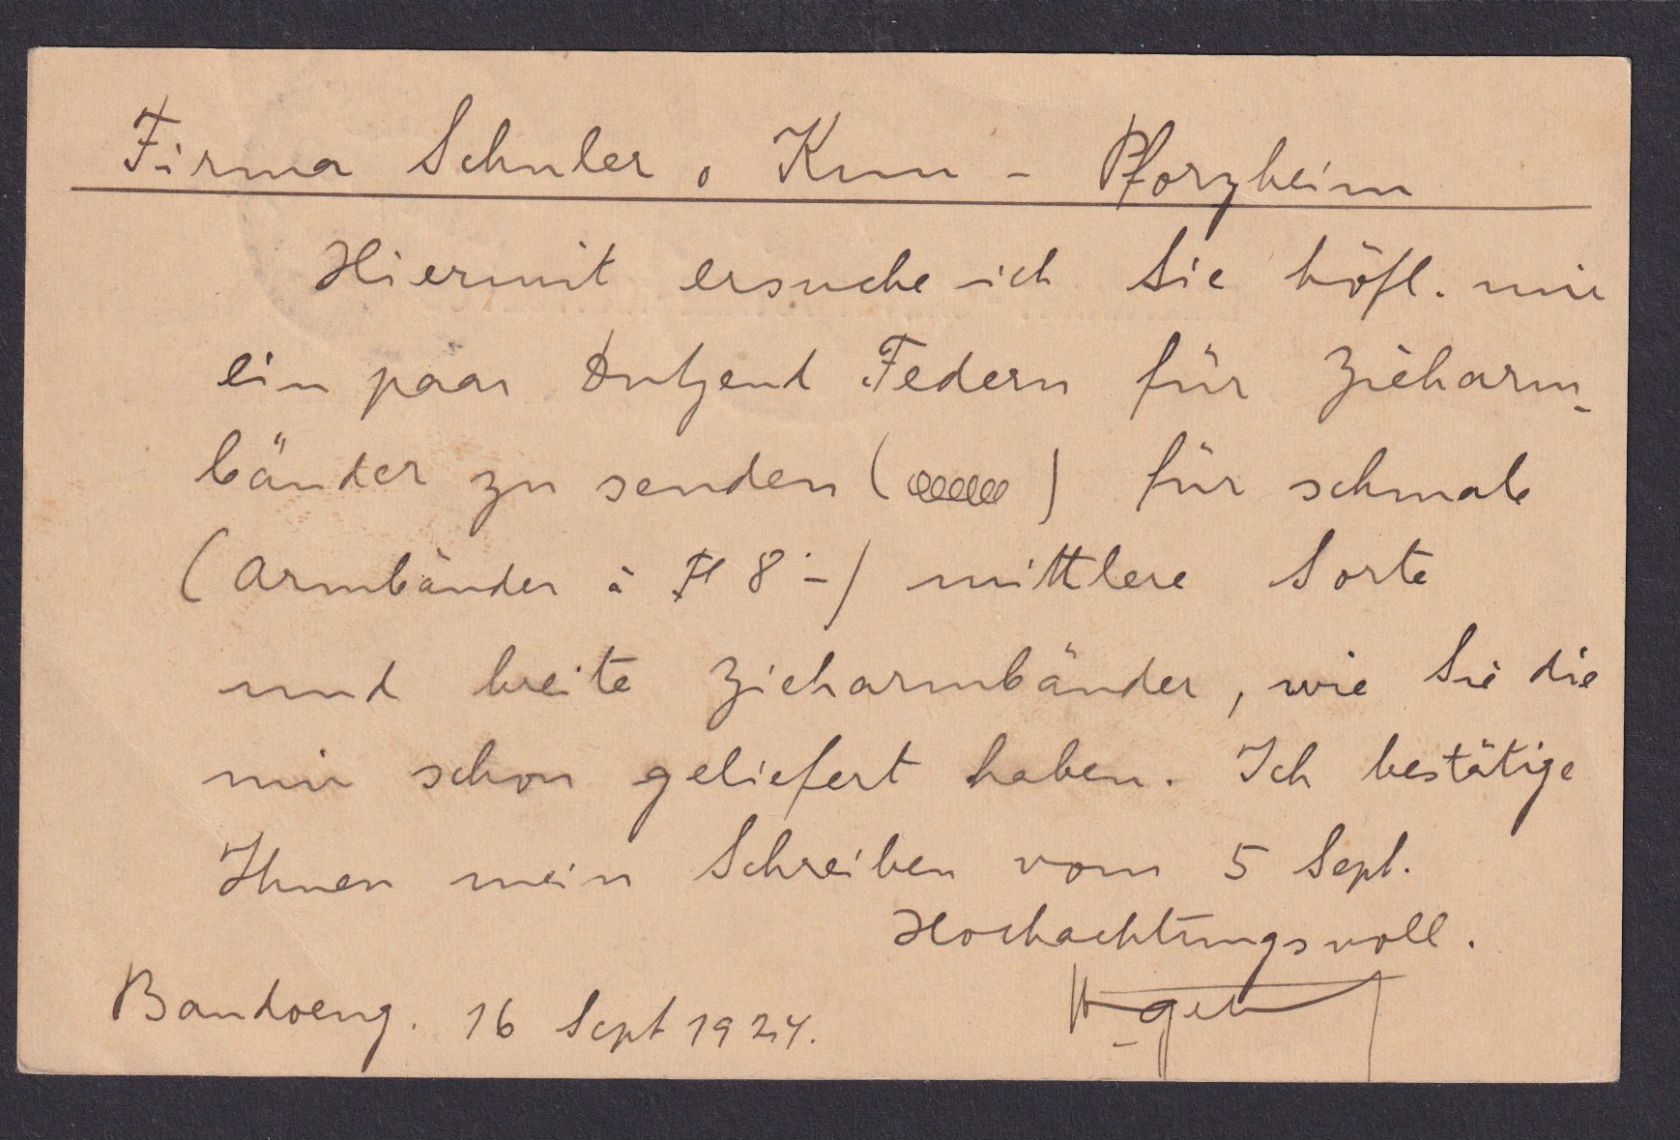 Firma Schuler o Kun - Pforzheim
Hiermit ersuche ich Sie höfl. mir
ein paar Dutzend Federn für Zieharm-
bänder zu senden ( ) für schmale
(Armbänder à Fl 8.-) mittlere Sorte
und breite Zieharmbänder, wie Sie die
mir schon geliefert haben. Ich bestätige
Ihnen mein Schreiben vom 5 Sept.
Hochachtungsvoll.
Bandoeng. 16 Sept 1924.